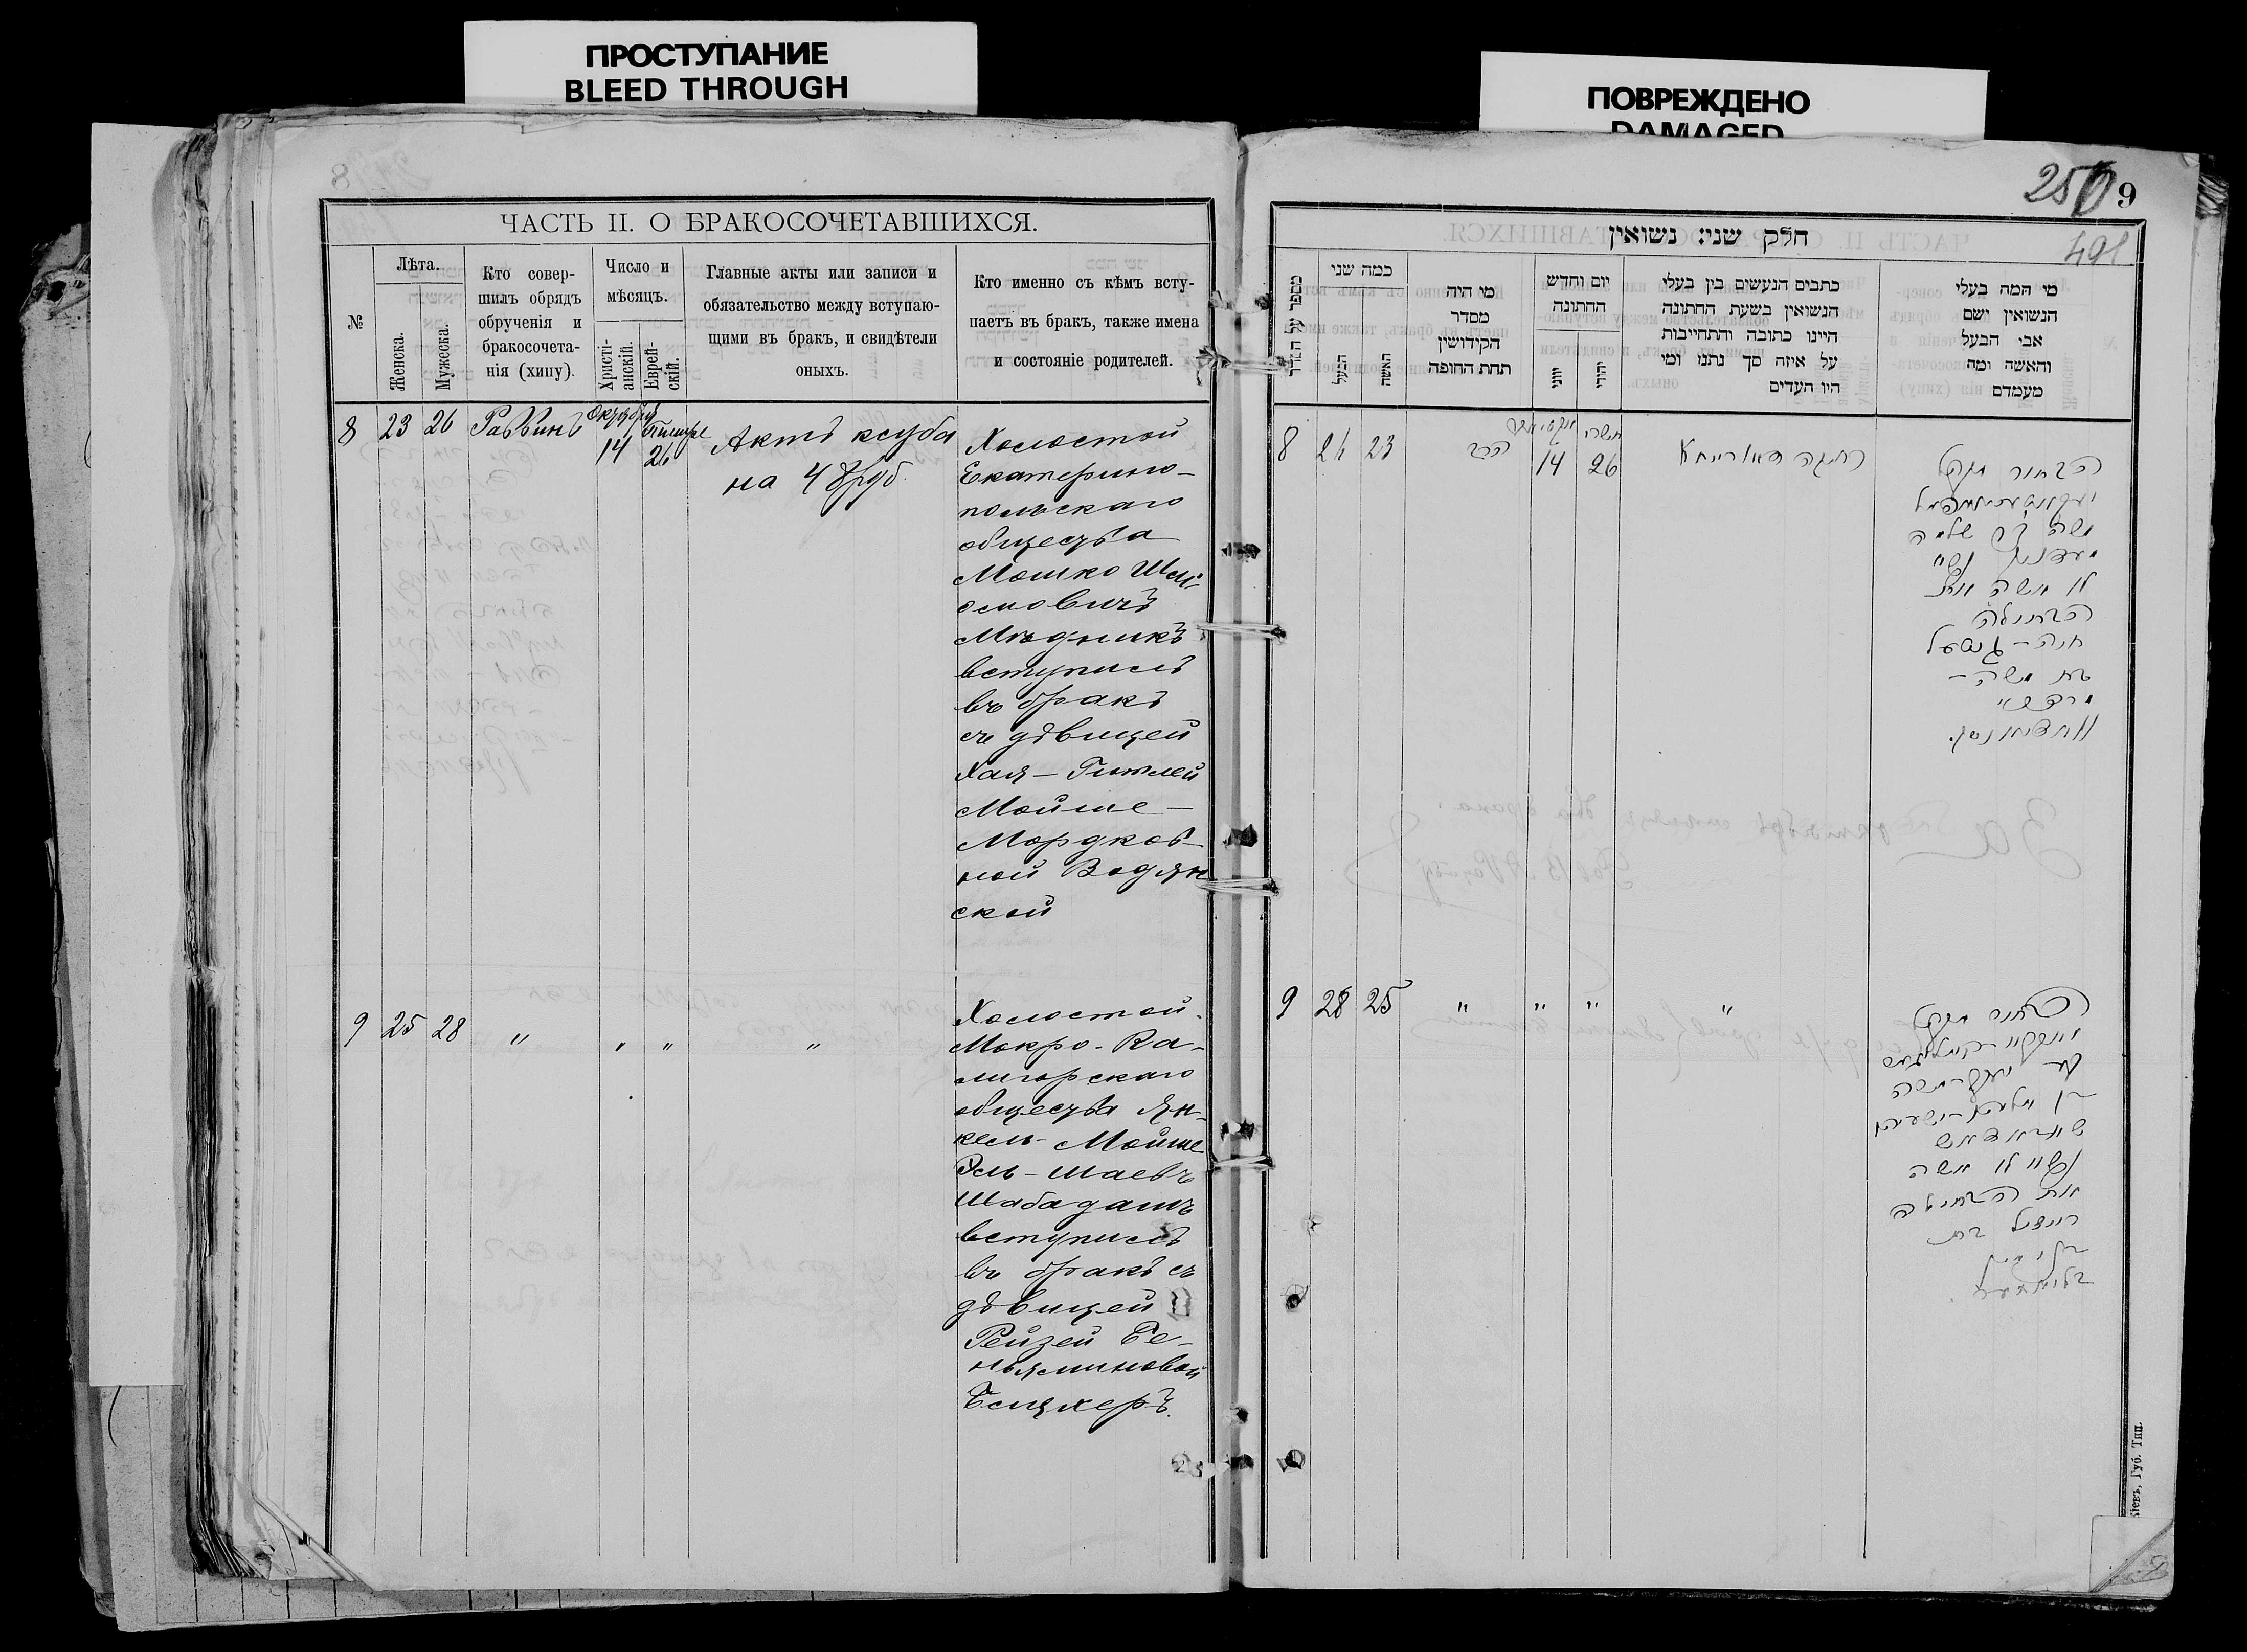 ПРОСТУПАНИЕ
BLEED THROUGH
ПОВРЕЖДЕНО
DAMAGED
ЧАСТЬ II. О БРАКОСОЧЕТАВШИХСЯ.
№
Лѣта.
Женска.
Мужеска.
Кто совер-
шилъ обрядъ
обрученія и
бракосочета-
нія (хипу).
Число и
мѣсяцъ.
Христі-
анскій.
Еврей-
скій.
Главные акты или записи и
обязательство между вступаю-
щими въ бракъ, и свидѣтели
оныхъ.
Кто именно съ кѣмъ всту-
паетъ въ бракъ, также имена
и состояніе родителей.
8 23 26 Раввинъ
Октября
14
Тишре
26
Актъ ксуба
на 48 руб.
Холостой
Екатерино-
польскаго
общества
Мошко Шлі-
омовичъ
Мѣдникъ
вступилъ
въ бракъ
съ дѣвицей
Хая-Гитлей
Мойше-
Мордков-
ной Водян
ской
9 25 28 " " " "
Холостой
Мокро-Ка-
лигорскаго
общества Ян-
кель-Мойше
Эль-Шаевъ
Шабадашъ
вступилъ
въ бракъ съ
дѣвицей
Рейзей Бе-
ньяминовой
Белцкеръ.
250 9
491
חלק שני׃ נשואין
מספר על הסדר
כמה שני
הבעל
האשה
מי היה
מסדר
הקידושין
תחת החופה
יום וחדש
החתונה
יוני
יהודי
כתבים הנעשים בין בעלי
הנשואין בשעת החתונה
היינו כתובה והתחייבות
על איזה סך נתנו ומי
היו העדים
מי המה בעלי
הנשואין ושם
אבי הבעל
והאשה ומה
מעמדם
8 26 23
הרב
14
תשרי
26
הבחור מקהל
משה בן שלמה
נשא
לו אשה את
הבתולה
חיה-גיטל
בת משה-
מרדכי
9 28 25 " " " "
הבחור מקהל
יעקב-משה
נשא לו אשה
את הבתולה
רייזל בת
Кіевъ, Губ. Тип.